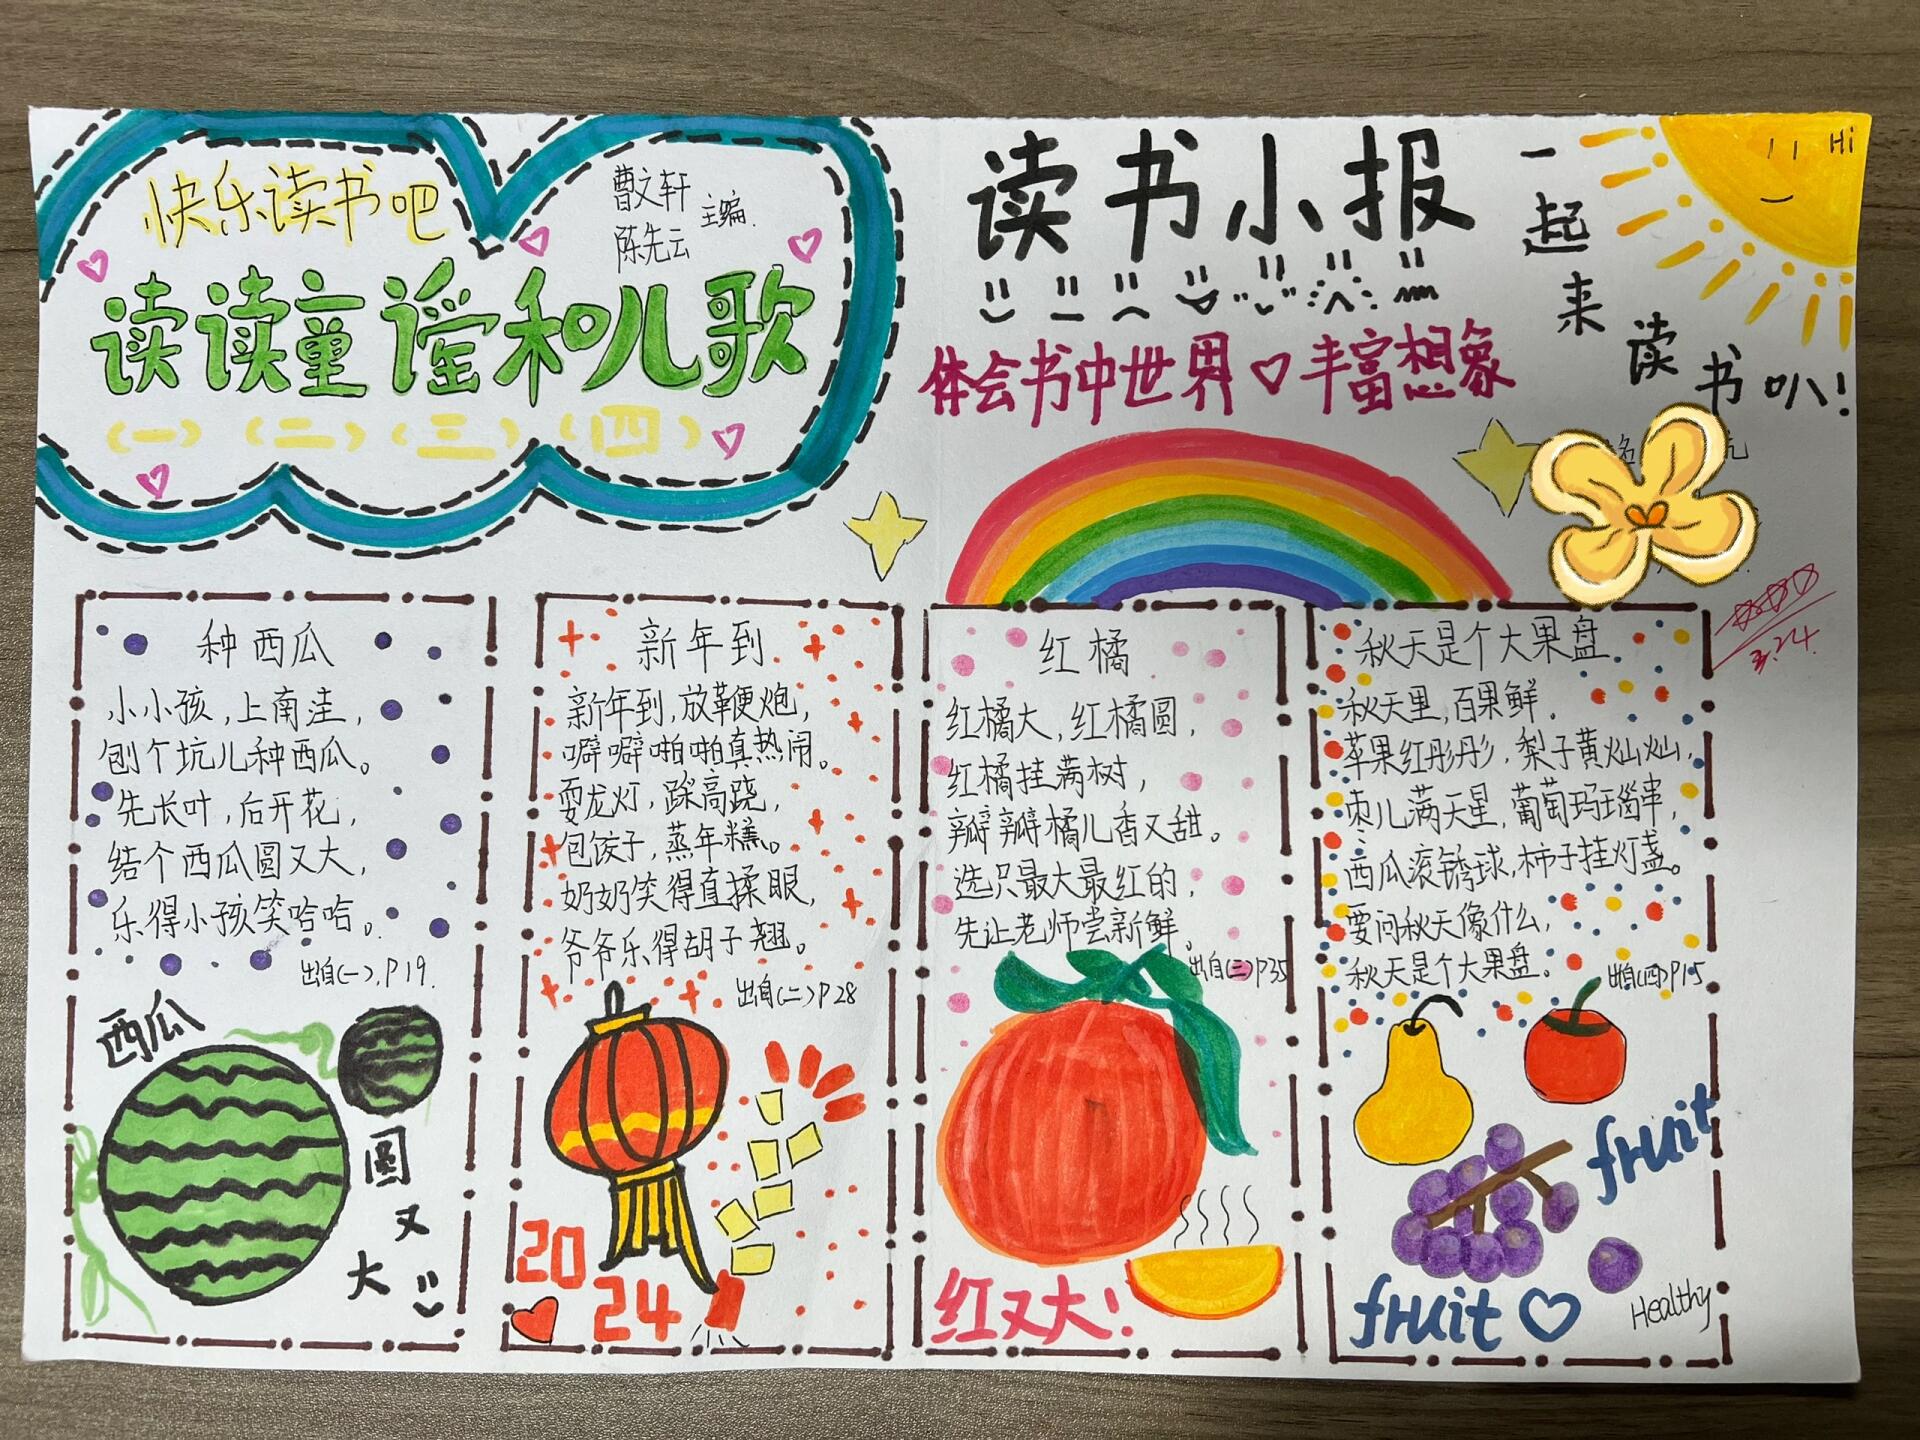 快乐读书吧
曹文轩
陈先云
主编.
读读童谣和儿歌
(一) (二) (三) (四)
读书小报
体会书中世界♡丰富想象
一起来读书叭!
Hi
3.24.
种西瓜
小小孩,上南洼,
刨个坑儿种西瓜。
先长叶,后开花,
结个西瓜圆又大,
乐得小孩笑哈哈。
出自(一),P19.
西瓜
圆
又
大
新年到
新年到,放鞭炮,
噼噼啪啪真热闹。
耍龙灯,踩高跷,
包饺子,蒸年糕。
奶奶笑得直揉眼,
爷爷乐得胡子翘。
出自(二)P28
20
24
红橘
红橘大,红橘圆,
红橘挂满树,
瓣瓣橘儿香又甜。
选只最大最红的,
先让老师尝新鲜。
出自(三)P35
红又大!
秋天是个大果盘
秋天里,百果鲜.
苹果红彤彤,梨子黄灿灿,
枣儿满天星,葡萄玛瑙串,
西瓜滚锈球,柿子挂灯盏。
要问秋天像什么,
秋天是个大果盘。
出自(四)P15
fruit
fruit♡
Healthy